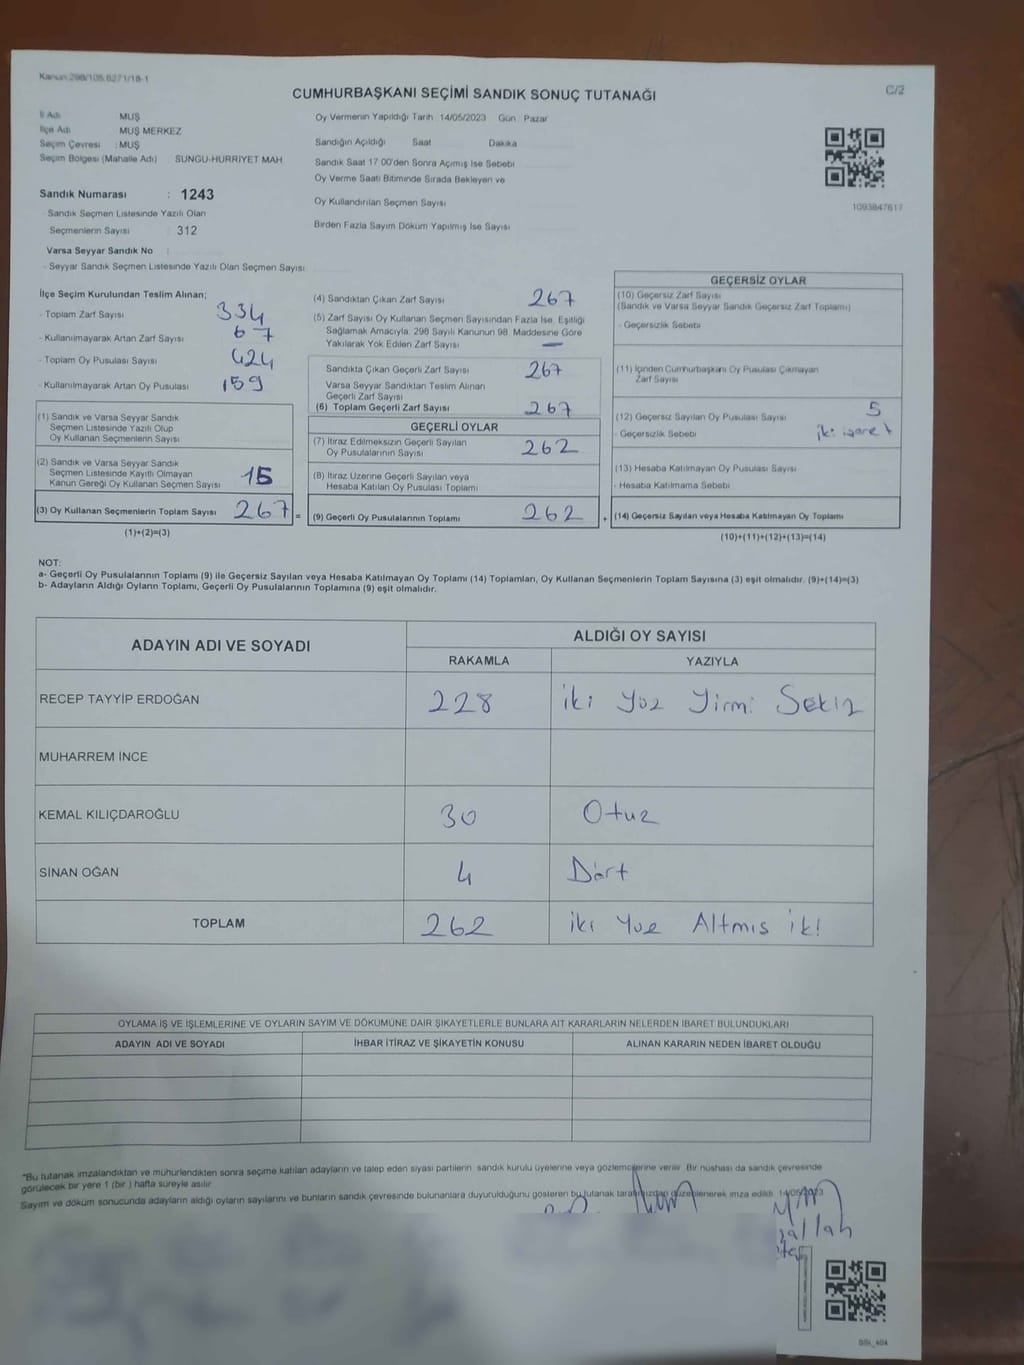 Kanun:298/105,6271/18-1
CUMHURBAŞKANI SEÇİMİ SANDIK SONUÇ TUTANAĞI
C/2
İl Adı MUŞ
İlçe Adı MUŞ MERKEZ
Seçim Çevresi : MUŞ
Seçim Bölgesi (Mahalle Adı) SUNGU-HURRIYET MAH
Oy Vermenin Yapıldığı Tarih : 14/05/2023 Gün : Pazar
Sandığın Açıldığı Saat Dakika
Sandık Saat 17.00'den Sonra Açılmış İse Sebebi
Oy Verme Saati Bitiminde Sırada Bekleyen ve
Oy Kullandırılan Seçmen Sayısı
Birden Fazla Sayım Döküm Yapılmış İse Sayısı
1093847617
Sandık Numarası : 1243
- Sandık Seçmen Listesinde Yazılı Olan
Seçmenlerin Sayısı : 312
Varsa Seyyar Sandık No :
- Seyyar Sandık Seçmen Listesinde Yazılı Olan Seçmen Sayısı
İlçe Seçim Kurulundan Teslim Alınan;
- Toplam Zarf Sayısı 334
- Kullanılmayarak Artan Zarf Sayısı 67
- Toplam Oy Pusulası Sayısı 424
- Kullanılmayarak Artan Oy Pusulası 159
(1) Sandık ve Varsa Seyyar Sandık
Seçmen Listesinde Yazılı Olup
Oy Kullanan Seçmenlerin Sayısı
(2) Sandık ve Varsa Seyyar Sandık
Seçmen Listesinde Kayıtlı Olmayan
Kanun Gereği Oy Kullanan Seçmen Sayısı 15
(3) Oy Kullanan Seçmenlerin Toplam Sayısı 267 =
(1)+(2)=(3)
(4) Sandıktan Çıkan Zarf Sayısı 267
(5) Zarf Sayısı Oy Kullanan Seçmen Sayısından Fazla İse, Eşitliği
Sağlamak Amacıyla, 298 Sayılı Kanunun 98. Maddesine Göre
Yakılarak Yok Edilen Zarf Sayısı —
Sandıkta Çıkan Geçerli Zarf Sayısı 267
Varsa Seyyar Sandıktan Teslim Alınan
Geçerli Zarf Sayısı
(6) Toplam Geçerli Zarf Sayısı 267
GEÇERLİ OYLAR
(7) İtiraz Edilmeksizin Geçerli Sayılan
Oy Pusulalarının Sayısı 262
(8) İtiraz Üzerine Geçerli Sayılan veya
Hesaba Katılan Oy Pusulası Toplamı
(9) Geçerli Oy Pusulalarının Toplamı 262 +
GEÇERSİZ OYLAR
(10) Geçersiz Zarf Sayısı
(Sandık ve Varsa Seyyar Sandık Geçersiz Zarf Toplamı)
- Geçersizlik Sebebi
(11) İçinden Cumhurbaşkanı Oy Pusulası Çıkmayan
Zarf Sayısı
(12) Geçersiz Sayılan Oy Pusulası Sayısı 5
- Geçersizlik Sebebi iki işaret
(13) Hesaba Katılmayan Oy Pusulası Sayısı
- Hesaba Katılmama Sebebi
(14) Geçersiz Sayılan veya Hesaba Katılmayan Oy Toplamı
(10)+(11)+(12)+(13)=(14)
NOT:
a- Geçerli Oy Pusulalarının Toplamı (9) ile Geçersiz Sayılan veya Hesaba Katılmayan Oy Toplamı (14) Toplamları, Oy Kullanan Seçmenlerin Toplam Sayısına (3) eşit olmalıdır. (9)+(14)=(3)
b- Adayların Aldığı Oyların Toplamı, Geçerli Oy Pusulalarının Toplamına (9) eşit olmalıdır.
ADAYIN ADI VE SOYADI ALDIĞI OY SAYISI
RAKAMLA YAZIYLA
RECEP TAYYİP ERDOĞAN 228 iki Yüz Yirmi Sekiz
MUHARREM İNCE
KEMAL KILIÇDAROĞLU 30 Otuz
SİNAN OĞAN 4 Dört
TOPLAM 262 iki Yüz Altmış iki
OYLAMA İŞ VE İŞLEMLERİNE VE OYLARIN SAYIM VE DÖKÜMÜNE DAİR ŞİKAYETLERLE BUNLARA AİT KARARLARIN NELERDEN İBARET BULUNDUKLARI
ADAYIN ADI VE SOYADI İHBAR İTİRAZ VE ŞİKAYETİN KONUSU ALINAN KARARIN NEDEN İBARET OLDUĞU
"Bu tutanak imzalandıktan ve mühürlendikten sonra seçime katılan adayların ve talep eden siyasi partilerin sandık kurulu üyelerine veya gözlemcilerine verilir. Bir nüshası da sandık çevresinde
görülecek bir yere 1 (bir ) hafta süreyle asılır.
Sayım ve döküm sonucunda adayların aldığı oyların sayılarını ve bunların sandık çevresinde bulunanlara duyurulduğunu gösteren bu tutanak tarafımızdan düzenlenerek imza edildi. 14/05/2023